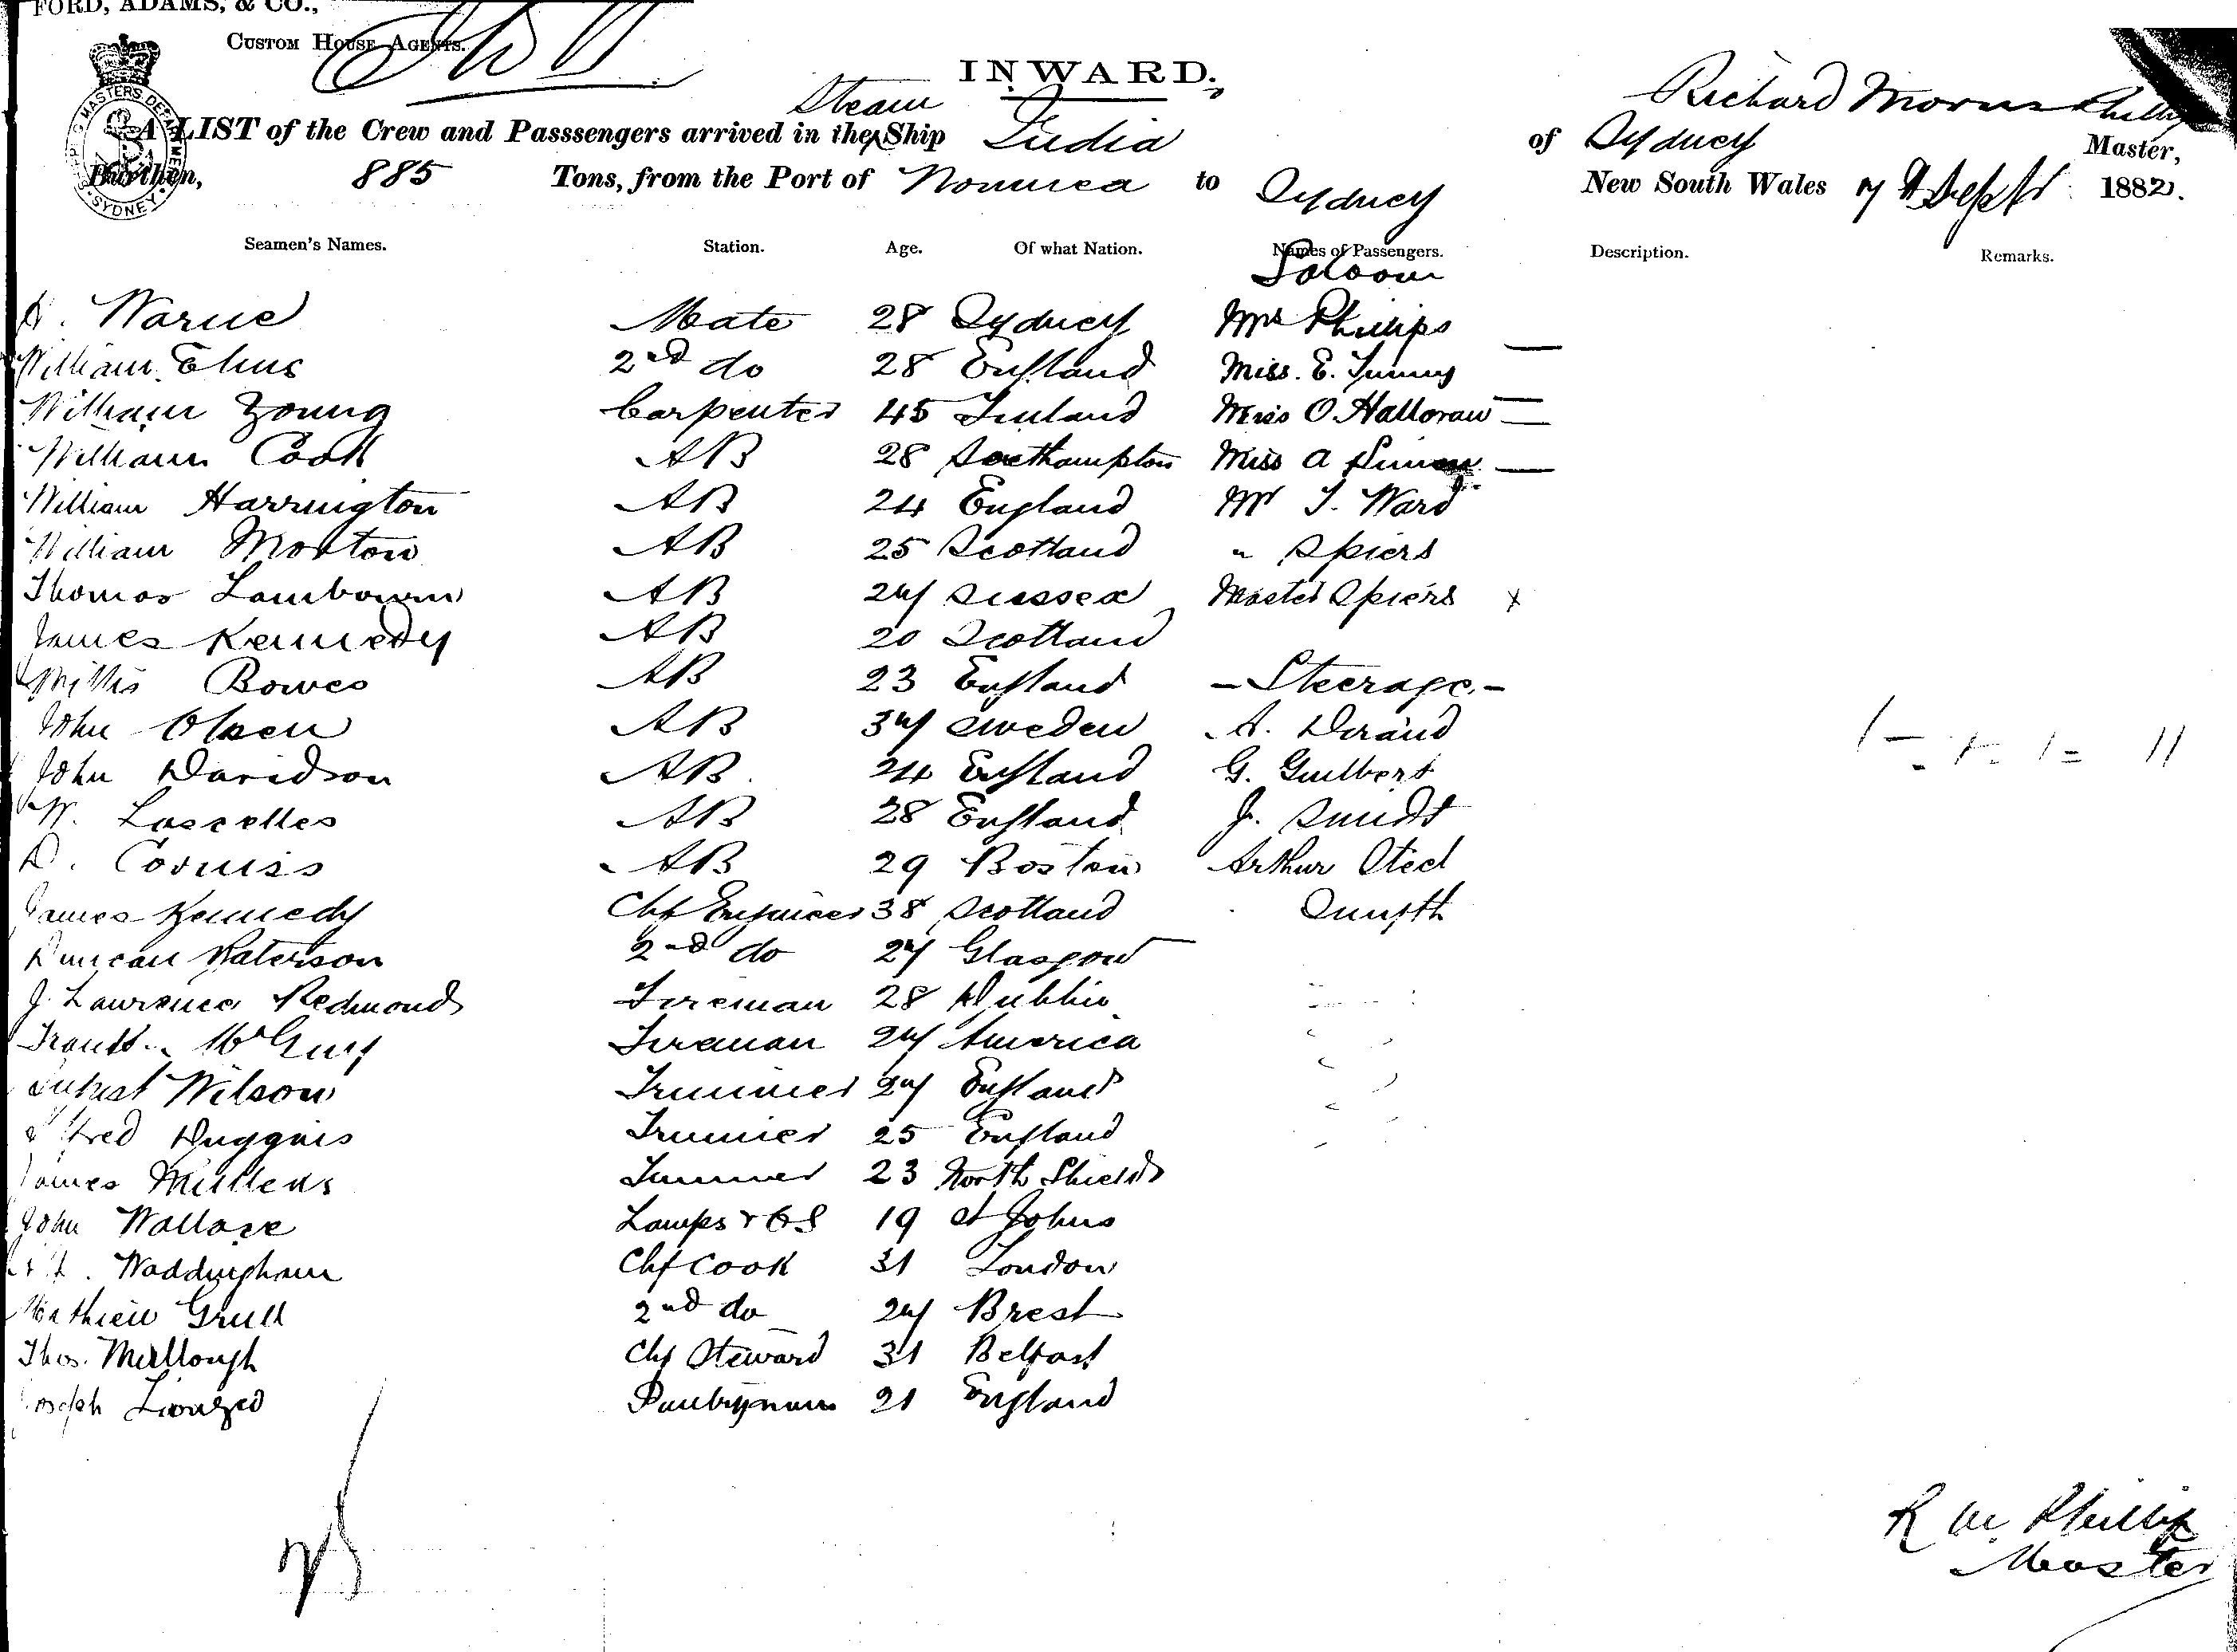 FORD, ADAMS, & CO.,
CUSTOM HOUSE AGENTS.
INWARD.
SHIPPING MASTERS DEPARTMENT SYDNEY
Steam Richard Morris Phillips
A LIST of the Crew and Passsengers arrived in the Ship India of Sydney Master,
Burthen, 885 Tons, from the Port of Noumea to Sydney New South Wales 7th Septr 1882.
Seamen's Names. Station. Age. Of what Nation. Names of Passengers. Description. Remarks.
Saloon
Warne Mate 28 Sydney Mrs Phillips
William 2nd do 28 England Miss. E.
William Young Carpenter 45 Miss O.Halloran
William Cook AB 28 Southampton Miss A
William Harrington AB 24 England Mr T. Ward
William Morton AB 25 Scotland " Spiers
Thomas Lambourn AB 27 Sussex Master Spiers x
James Kennedy AB 20 Scotland
Willis Bowes AB 23 England - Steerage. -
John Olsen AB 37 Sweden A. Durand
John Davidson AB 24 England G. Guilbert
W. Lascelles AB 28 England J. Smidt
D. Corniss AB 29 Boston Arthur Steel
James Kennedy Chf Engineer 38 Scotland Smyth
Duncan Paterson 2nd do 27 Glasgow
J. Lawrence Redmond Fireman 28 Dublin
Fireman 27 America
Wilson Trimmer 27 England
Alfred Duggins Trimmer 25 England
James Mullens Trimmer 23 North Shields
John Wallace Lamps & GS 19 St Johns
Waddingham Chf Cook 31 London
Mathieu 2nd do 27 Brest
Thos. Mullough Chf Steward 31 Belfast
Joseph Pantryman 21 England
R M Phillips
Master